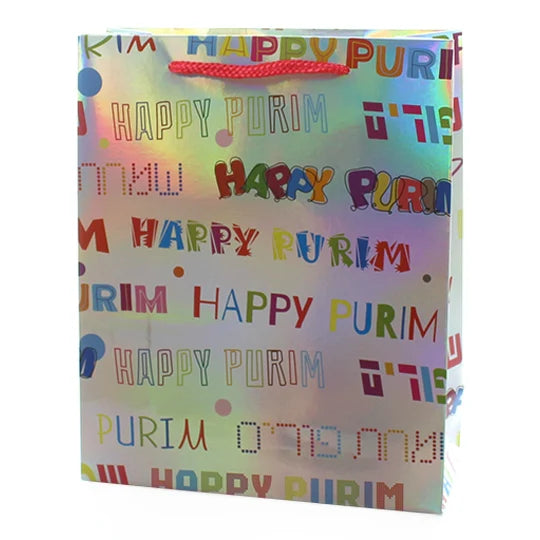 PURIM HAPPY PURIM
HAPPY PURIM פורים
שמחת HAPPY PURIM
M HAPPY PURIM
URIM HAPPY PURIM
HAPPY PURIM פורים
PURIM שמחת פורים
HAPPY PURIM